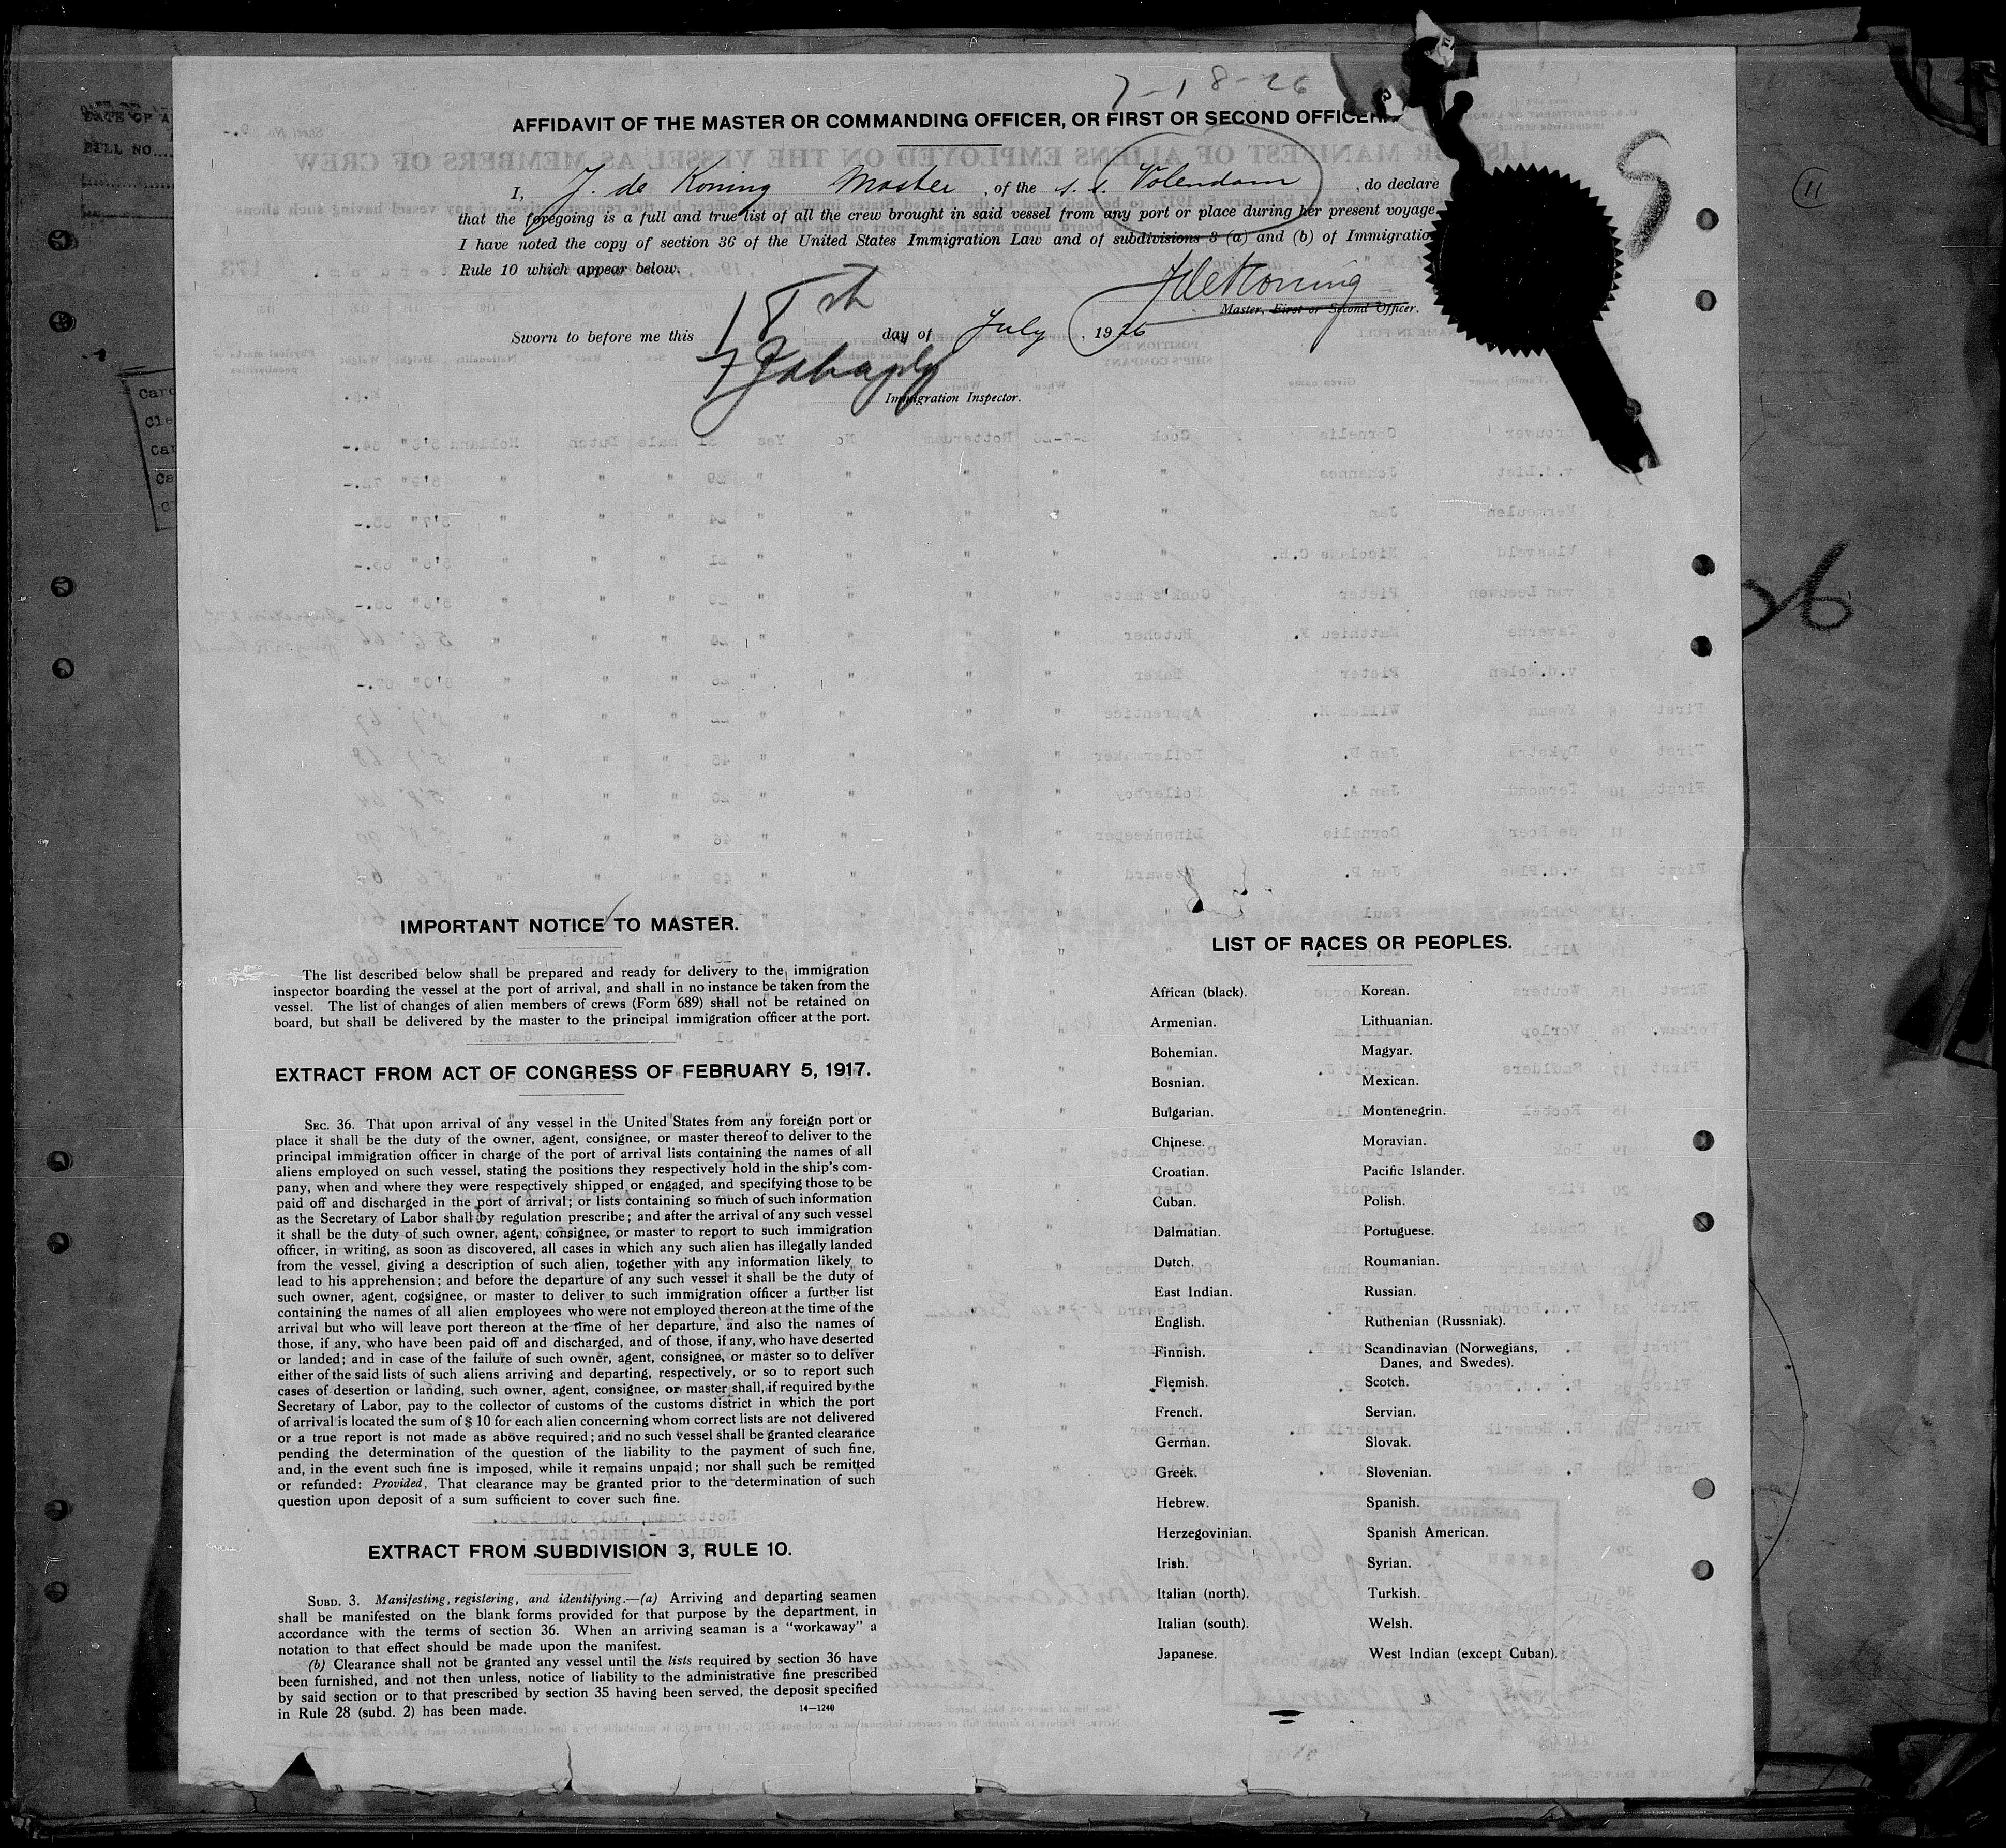 7-18-26
AFFIDAVIT OF THE MASTER OR COMMANDING OFFICER, OR FIRST OR SECOND OFFICER.
I, J. de Koning Master, of the s. s. Volendam, do declare
that the foregoing is a full and true list of all the crew brought in said vessel from any port or place during her present voyage.
I have noted the copy of section 36 of the United States Immigration Law and of subdivisions 3 (a) and (b) of Immigration
Rule 10 which appear below.
JdeKoning
Master, First or Second Officer.
Sworn to before me this 18th day of July, 1926
Immigration Inspector.
11
26
DATE OF A
BILL NO....
IMPORTANT NOTICE TO MASTER.
The list described below shall be prepared and ready for delivery to the immigration
inspector boarding the vessel at the port of arrival, and shall in no instance be taken from the
vessel. The list of changes of alien members of crews (Form 689) shall not be retained on
board, but shall be delivered by the master to the principal immigration officer at the port.
EXTRACT FROM ACT OF CONGRESS OF FEBRUARY 5, 1917.
SEC. 36. That upon arrival of any vessel in the United States from any foreign port or
place it shall be the duty of the owner, agent, consignee, or master thereof to deliver to the
principal immigration officer in charge of the port of arrival lists containing the names of all
aliens employed on such vessel, stating the positions they respectively hold in the ship's com-
pany, when and where they were respectively shipped or engaged, and specifying those to be
paid off and discharged in the port of arrival; or lists containing so much of such information
as the Secretary of Labor shall by regulation prescribe; and after the arrival of any such vessel
it shall be the duty of such owner, agent, consignee, or master to report to such immigration
officer, in writing, as soon as discovered, all cases in which any such alien has illegally landed
from the vessel, giving a description of such alien, together with any information likely to
lead to his apprehension; and before the departure of any such vessel it shall be the duty of
such owner, agent, cogsignee, or master to deliver to such immigration officer a further list
containing the names of all alien employees who were not employed thereon at the time of the
arrival but who will leave port thereon at the time of her departure, and also the names of
those, if any, who have been paid off and discharged, and of those, if any, who have deserted
or landed; and in case of the failure of such owner, agent, consignee, or master so to deliver
either of the said lists of such aliens arriving and departing, respectively, or so to report such
cases of desertion or landing, such owner, agent, consignee, or master shall, if required by the
Secretary of Labor, pay to the collector of customs of the customs district in which the port
of arrival is located the sum of $ 10 for each alien concerning whom correct lists are not delivered
or a true report is not made as above required; and no such vessel shall be granted clearance
pending the determination of the question of the liability to the payment of such fine,
and, in the event such fine is imposed, while it remains unpaid; nor shall such be remitted
or refunded: Provided, That clearance may be granted prior to the determination of such
question upon deposit of a sum sufficient to cover such fine.
EXTRACT FROM SUBDIVISION 3, RULE 10.
SUBD. 3. Manifesting, registering, and identifying.—(a) Arriving and departing seamen
shall be manifested on the blank forms provided for that purpose by the department, in
accordance with the terms of section 36. When an arriving seaman is a "workaway" a
notation to that effect should be made upon the manifest.
(b) Clearance shall not be granted any vessel until the lists required by section 36 have
been furnished, and not then unless, notice of liability to the administrative fine prescribed
by said section or to that prescribed by section 35 having been served, the deposit specified
in Rule 28 (subd. 2) has been made.
14—1240
LIST OF RACES OR PEOPLES.
African (black). Korean.
Armenian. Lithuanian.
Bohemian. Magyar.
Bosnian. Mexican.
Bulgarian. Montenegrin.
Chinese. Moravian.
Croatian. Pacific Islander.
Cuban. Polish.
Dalmatian. Portuguese.
Dutch. Roumanian.
East Indian. Russian.
English. Ruthenian (Russniak).
Finnish. Scandinavian (Norwegians,
Danes, and Swedes).
Flemish. Scotch.
French. Servian.
German. Slovak.
Greek. Slovenian.
Hebrew. Spanish.
Herzegovinian. Spanish American.
Irish. Syrian.
Italian (north). Turkish.
Italian (south). Welsh.
Japanese. West Indian (except Cuban).